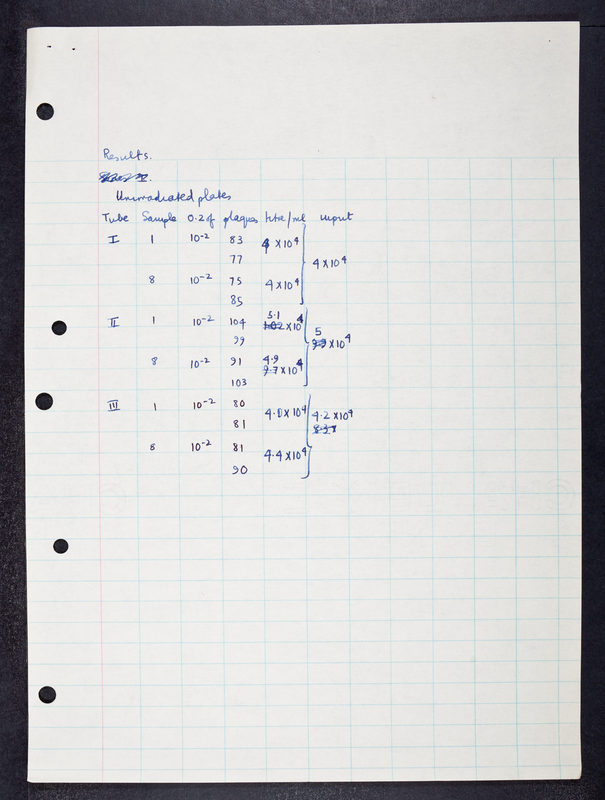 Results.
Unirradiated plates
Tube Sample 0.2 of plaques titre/ml input
I 1 10⁻² 83 4 × 10⁴
77
4 × 10⁴
8 10⁻² 75 4 × 10⁴
85
II 1 10⁻² 104 5.1 1.02 × 10⁴
99
5 9.9 × 10⁴
8 10⁻² 91 4.9 9.7 × 10⁴
103
III 1 10⁻² 80 4.0 × 10⁴
81
4.2 × 10⁴
8 10⁻² 81 4.4 × 10⁴
90